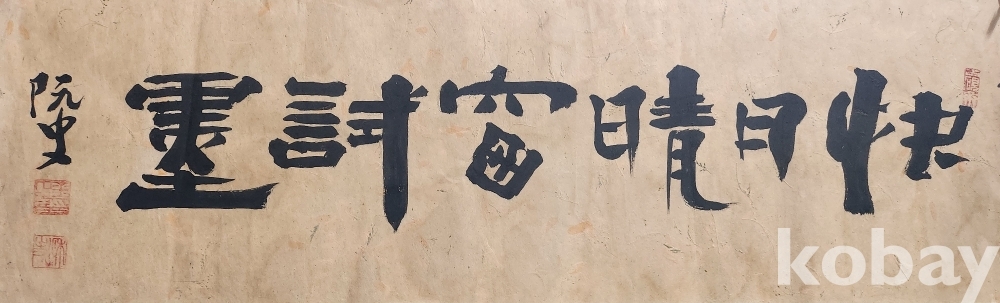 快日晴窗試墨
阮史
kobay